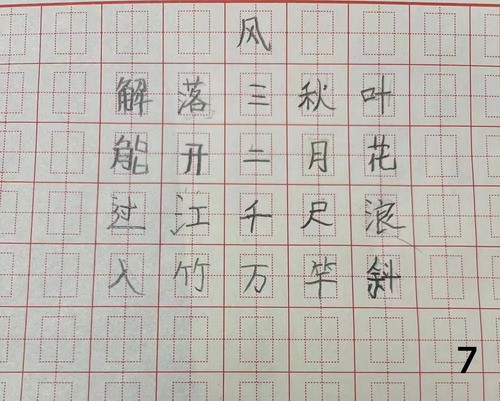 风
解落三秋叶
能开二月花
过江千尺浪
入竹万竿斜
7